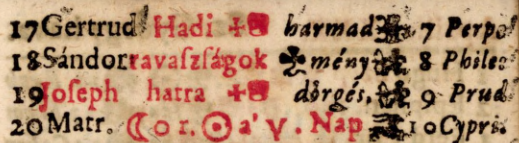 17 Gertrud Hadi harmad 7 Perpe
18 Sándor ravaſzſágok mény 8 Philes
19 Joſeph hatra dörgés, 9 Prud
20 Matr. ☾ 0 1. ☉ a' ♈. Nap 10 Cypri.